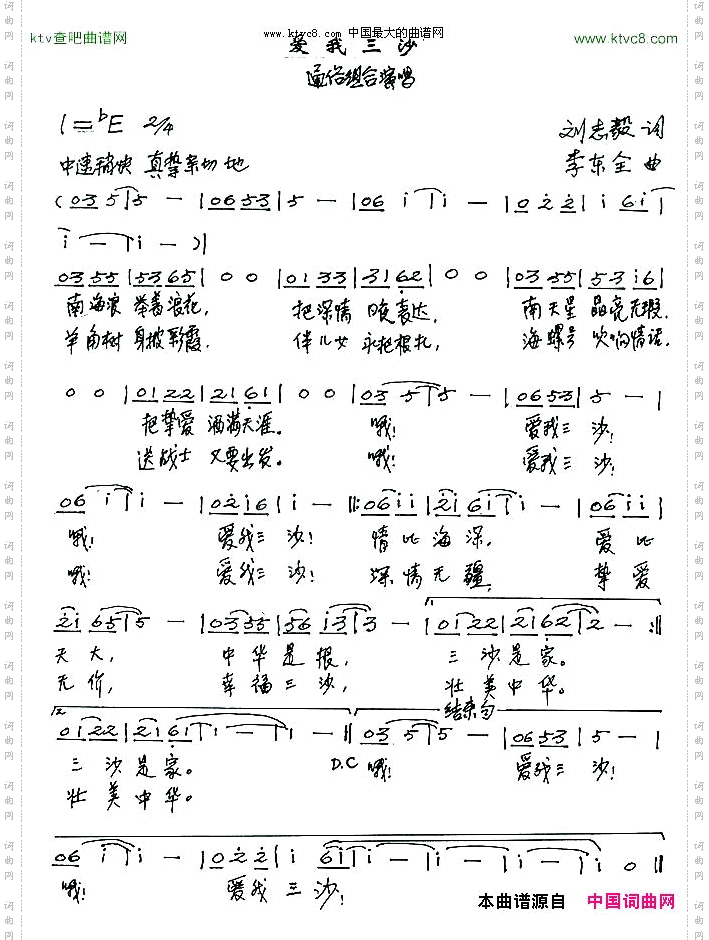 www.ktvc8.com 中国最大的曲谱网
ktv查吧曲谱网
www.ktvc8.com
爱我三沙
通俗组合演唱
1=bE 2/4
刘志毅 词
中速稍快 真挚亲切地
李东全 曲
(03 5|5 - |0653|5 - |06 i|i - |0 2 2|i 6i|
i - |i - )|
03 55|53 65|0 0 |01 33|31 62|0 0 |03 55|53 i6|
南海浪 举着浪花, 把深情 表达, 南天星 晶亮无瑕.
羊角树 身披彩霞. 伴儿女 永把根扎, 海螺号 吹响情话.
0 0 |01 22|21 61|0 0 |03 5|5 - |0653|5 - |
把挚爱 洒满天涯。 哦! 爱我三 沙!
送战士 又要出发。 哦! 爱我三 沙!
06 i|i - |02i6|i - |:06ii|2i 6i|i - |06ii|
哦! 爱我三 沙! 情比海深, 爱比
哦! 爱我三 沙! 深情无疆, 挚爱
2i 65|5 - |0355|56 i3|3 - |01 22|21 62|2 - :|
天大, 中华是根, 三沙是家。
无价, 幸福三沙, 壮美中华。
结束句
2
01 22|21 61|1 - |1 - |03 5|5 - |0653|5 - |
三沙是家。 D.C 哦! 爱我三 沙!
壮美中华。
06 i|i - |0 2 2|i 6i|i - |i - |i - |i 0 |
哦! 爱我三沙!
本曲谱源自 中国词曲网
词曲网